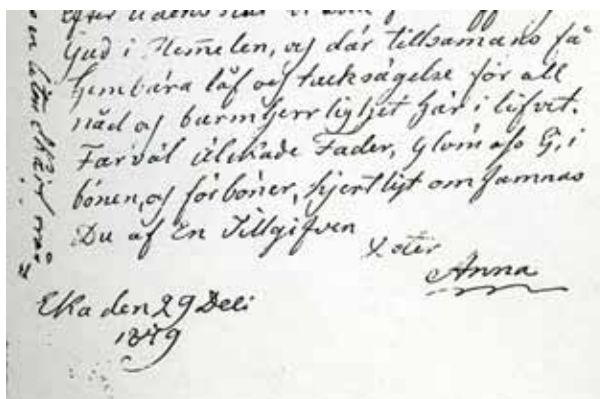 efter
Gud i Hemelen, och där tillsamans få
hembära låf och tacksägelse för all
nåd och barmherrlighet här i lifvet.
Farväl älskade Fader, glöm ass Ej, i
bönen, och förböner, hjertligt omfamnas
Du af En Tillgifven
Doter
Anna
Eka den 29 Deci
1879